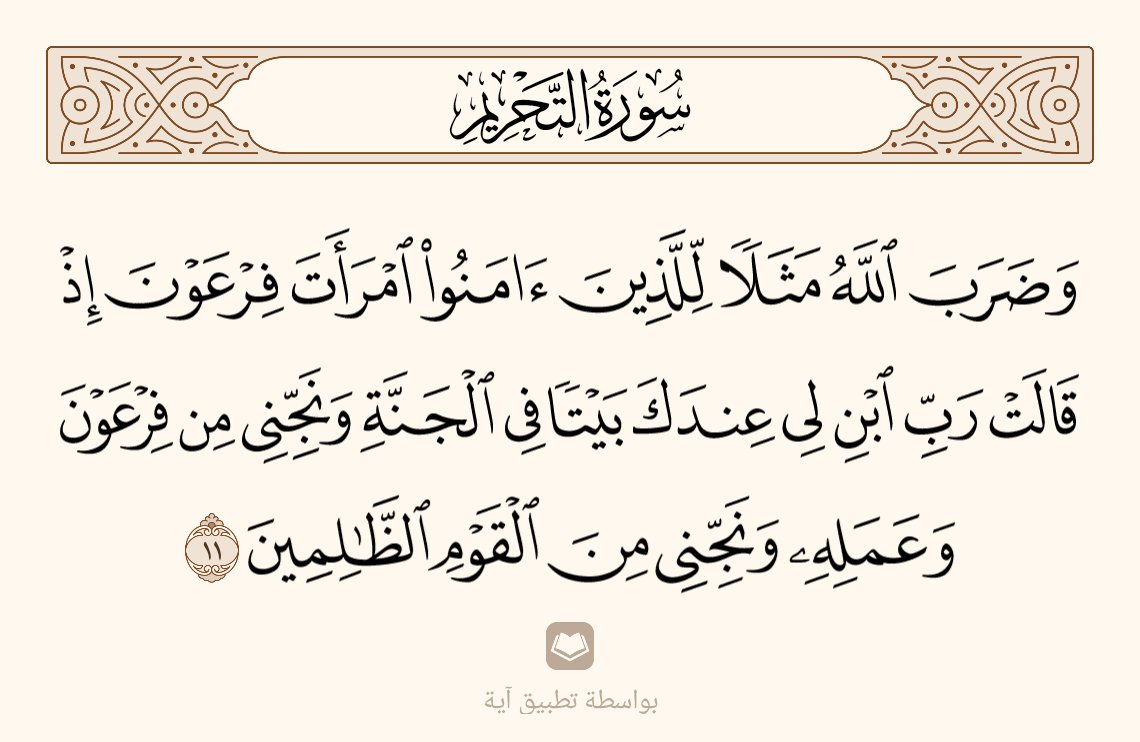 سُورَةُ التَّحْرِيمِ
وَضَرَبَ ٱللَّهُ مَثَلًا لِّلَّذِينَ ءَامَنُواْ ٱمْرَأَتَ فِرْعَوْنَ إِذْ
قَالَتْ رَبِّ ٱبْنِ لِي عِندَكَ بَيْتًا فِي ٱلْجَنَّةِ وَنَجِّنِي مِن فِرْعَوْنَ
وَعَمَلِهِۦ وَنَجِّنِي مِنَ ٱلْقَوْمِ ٱلظَّٰلِمِينَ ١١
بواسطة تطبيق آية